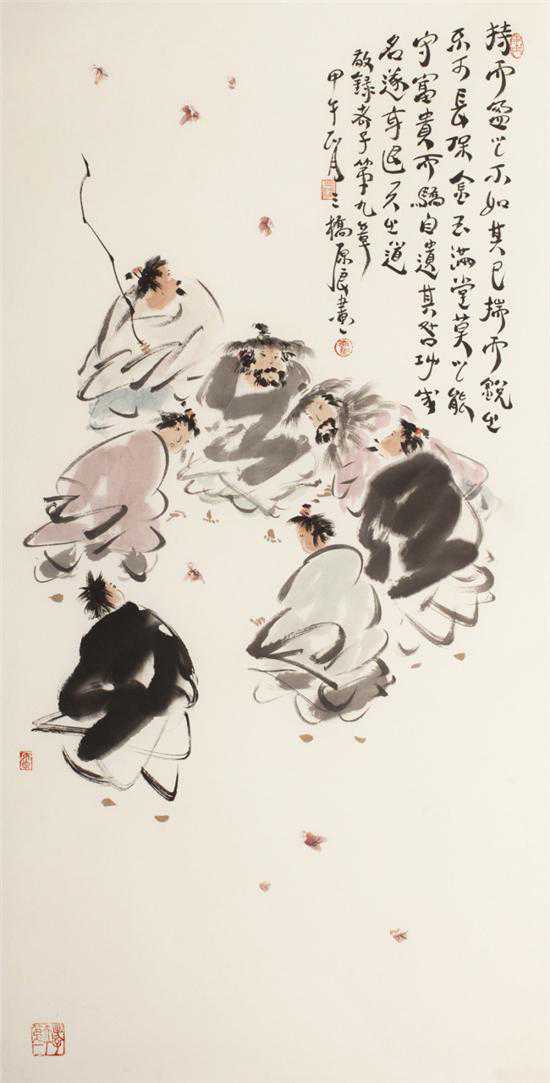 持而盈之不如其已揣而銳之
不可長保金玉滿堂莫之能
守富貴而驕自遺其咎功成
名遂身退天之道
敬錄老子第九章
甲午正月三橋原浪畫